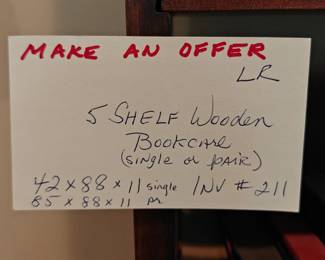 MAKE AN OFFER
LR
5 SHELF Wooden
Bookcase
(single or pair)
42 x 88 x 11 single INV # 211
85 x 88 x 11 pr